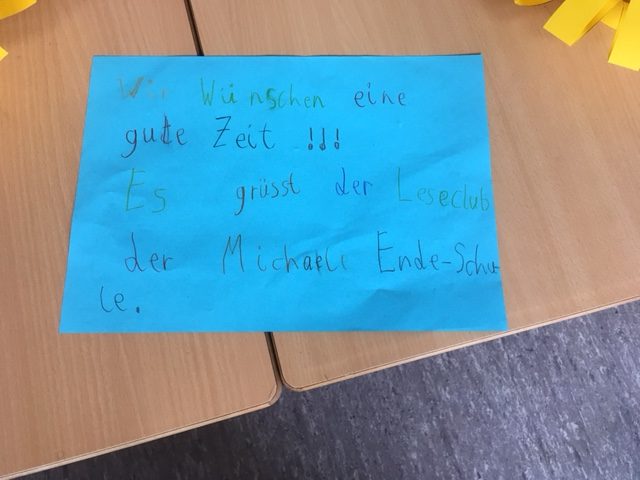 Wir Wünschen eine
gute Zeit !!!
Es grüsst der Leseclub
der Michaele Ende-Schu-
le.